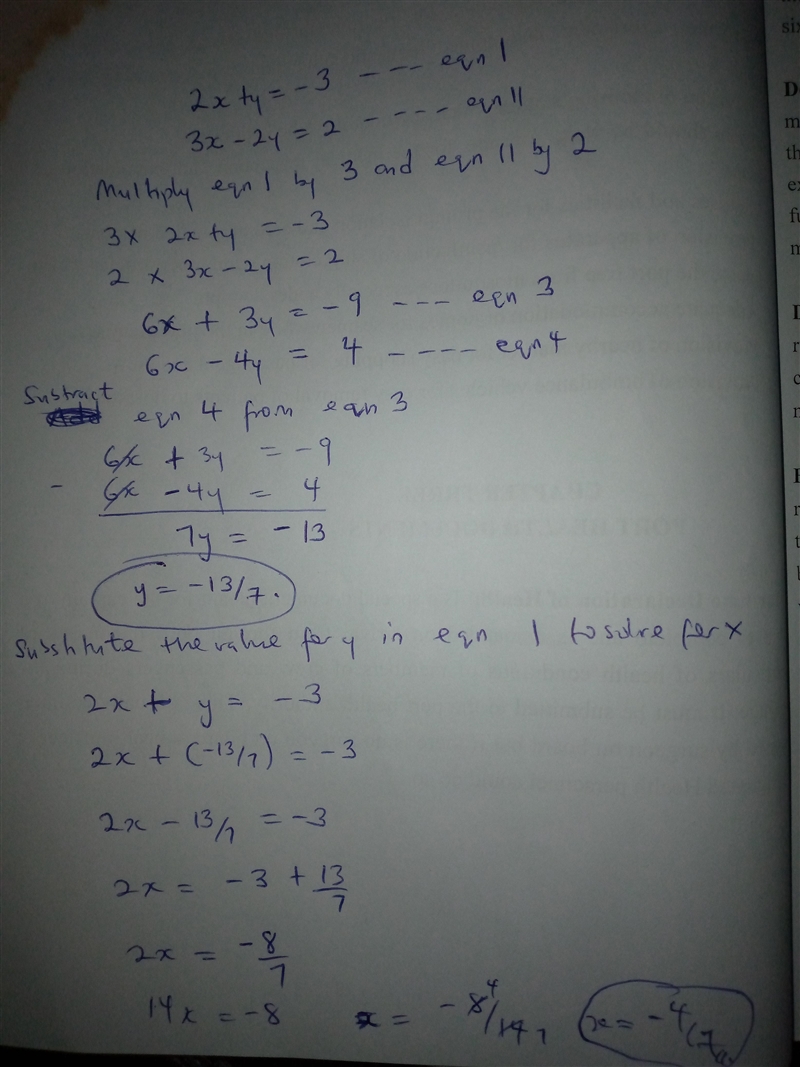 2x + y = -3 --- eqn 1
3x - 2y = 2 ---- eqn 11
Multiply eqn 1 by 3 and eqn 11 by 2
3 x 2x + y = -3
2 x 3x - 2y = 2
6x + 3y = -9 --- eqn 3
6x - 4y = 4 ---- eqn 4
Subtract eqn 4 from eqn 3
6x + 3y = -9
- 6x - 4y = 4
7y = -13
y = -13/7.
Substitute the value for y in eqn 1 to solve for x
2x + y = -3
2x + (-13/7) = -3
2x - 13/7 = -3
2x = -3 + 13/7
2x = -8/7
14x = -8 x = -8/14 x = -4/7
six
D
m
th
ex
fu
m